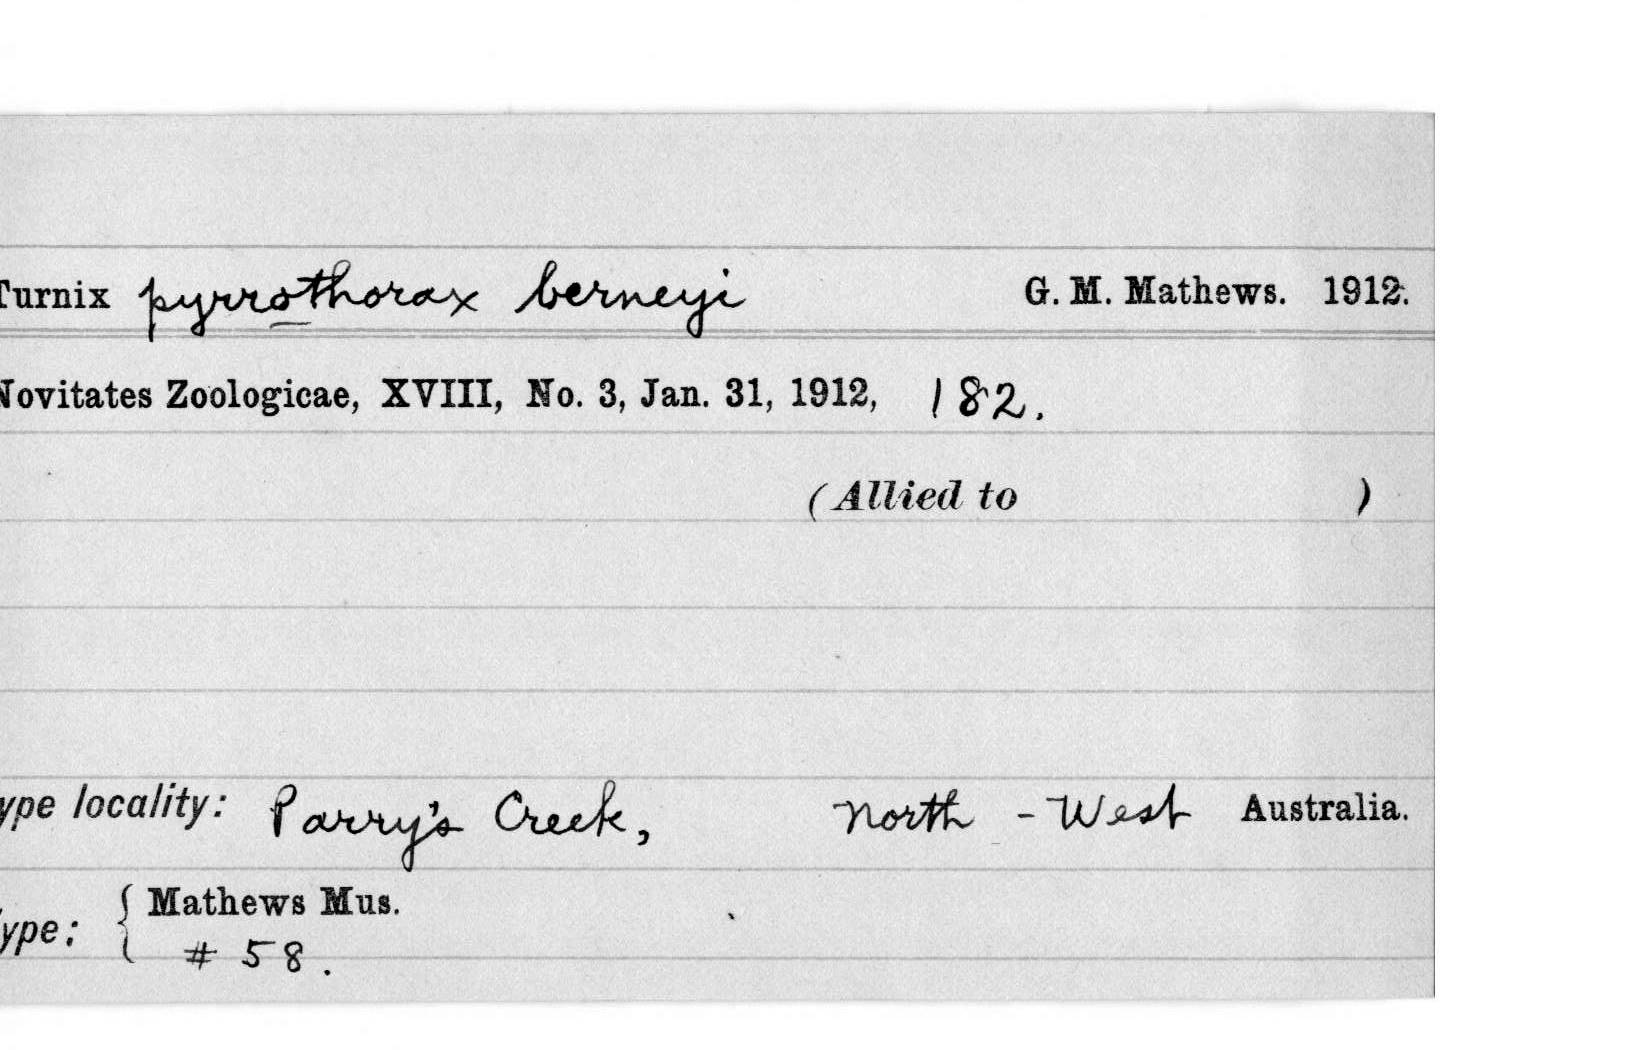 Turnix pyrrothorax berneyi G. M. Mathews. 1912.
Novitates Zoologicae, XVIII, No. 3, Jan. 31, 1912, 182.
(Allied to )
ype locality: Parry's Creek, North - West Australia.
ype: { Mathews Mus.
# 58.